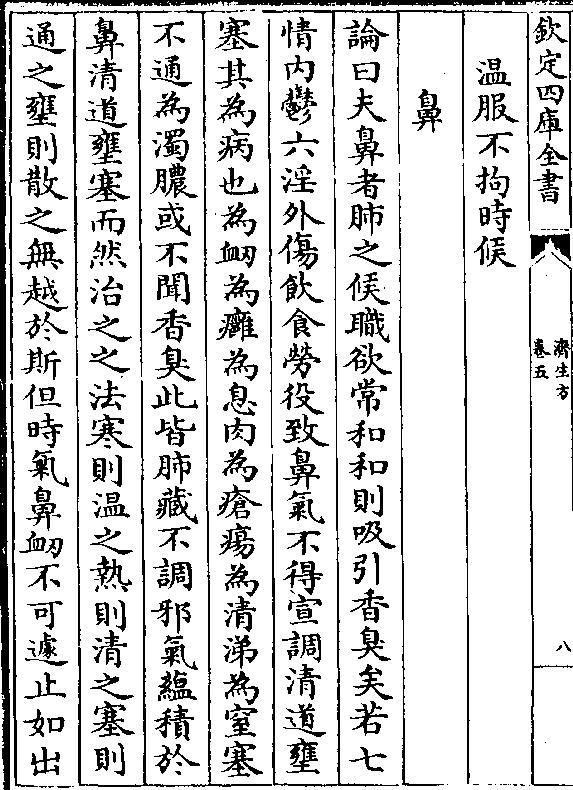 欽定四庫全書
濟生方
卷五
八
温服不拘時候
鼻
論曰夫鼻者肺之候職欲常和和則吸引香臭矣若七
情内鬱六淫外傷飲食勞役致鼻氣不得宣調清道壅
塞其為病也為衂為癰為息肉為瘡瘍為清涕為窒塞
不通為濁膿或不聞香臭此皆肺藏不調邪氣蘊積於
鼻清道壅塞而然治之之法寒則温之熱則清之塞則
通之壅則散之無越於斯但時氣鼻衂不可遽止如出